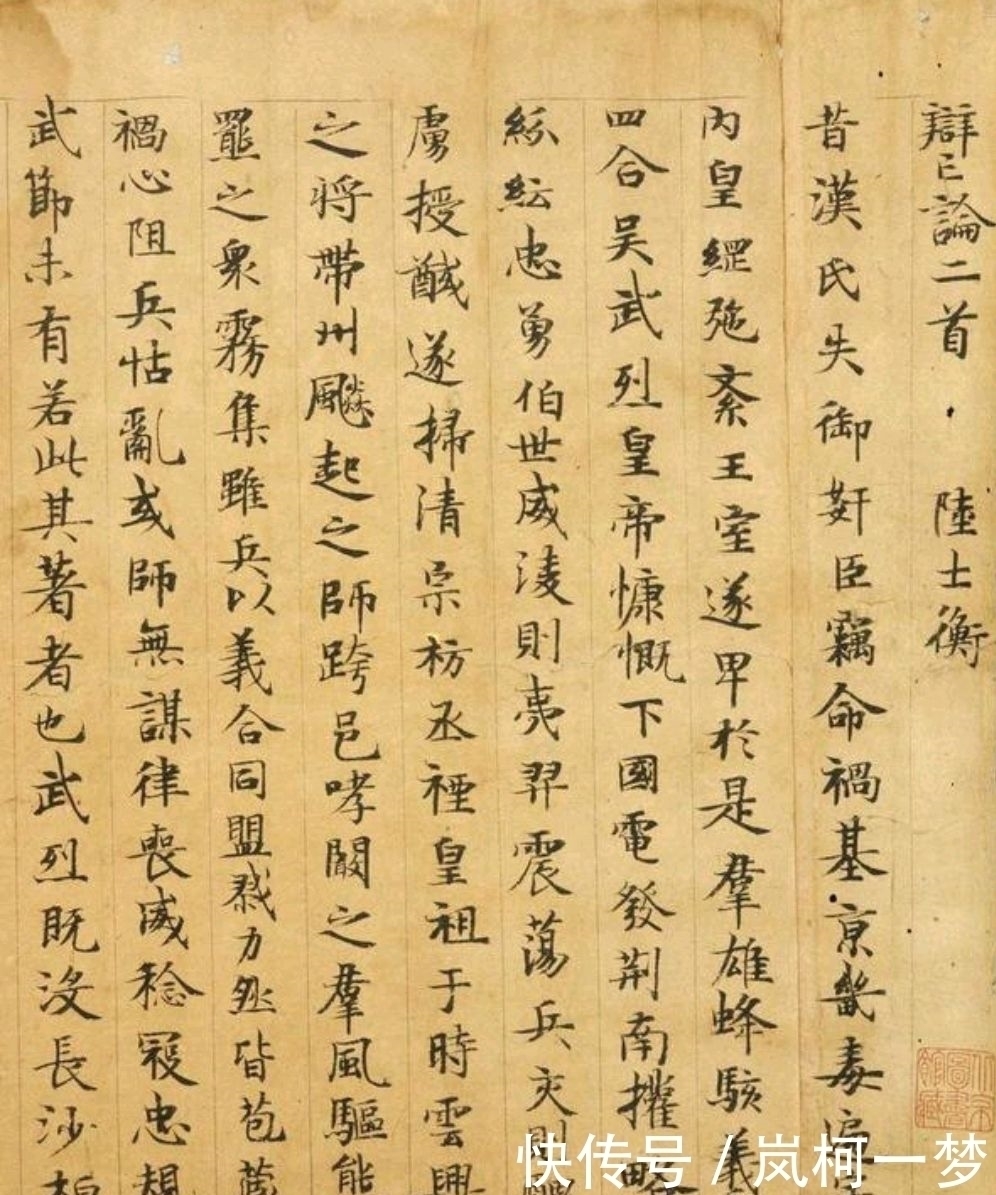 辯亡論二首 陸士衡
昔漢氏失御奸臣竊命禍基京畿毒遍
内皇綱弛紊王室遂卑於是羣雄蜂駭義
四合吴武烈皇帝慷慨下國電發荆南攉略
紛紜忠勇伯世威淩則夷羿震蕩兵交則醜
虜授馘遂掃清宗枋丞禋皇祖于時雲興
之将帶州飈起之師跨邑哮闞之羣風驅熊
羆之衆霧集雖兵以義合同盟勠力然皆苞藏
禍心阻兵怙亂或師無謀律喪威稔寇忠規
武節未有若此其著者也武烈既没長沙桓
快传号 / 岚柯一梦